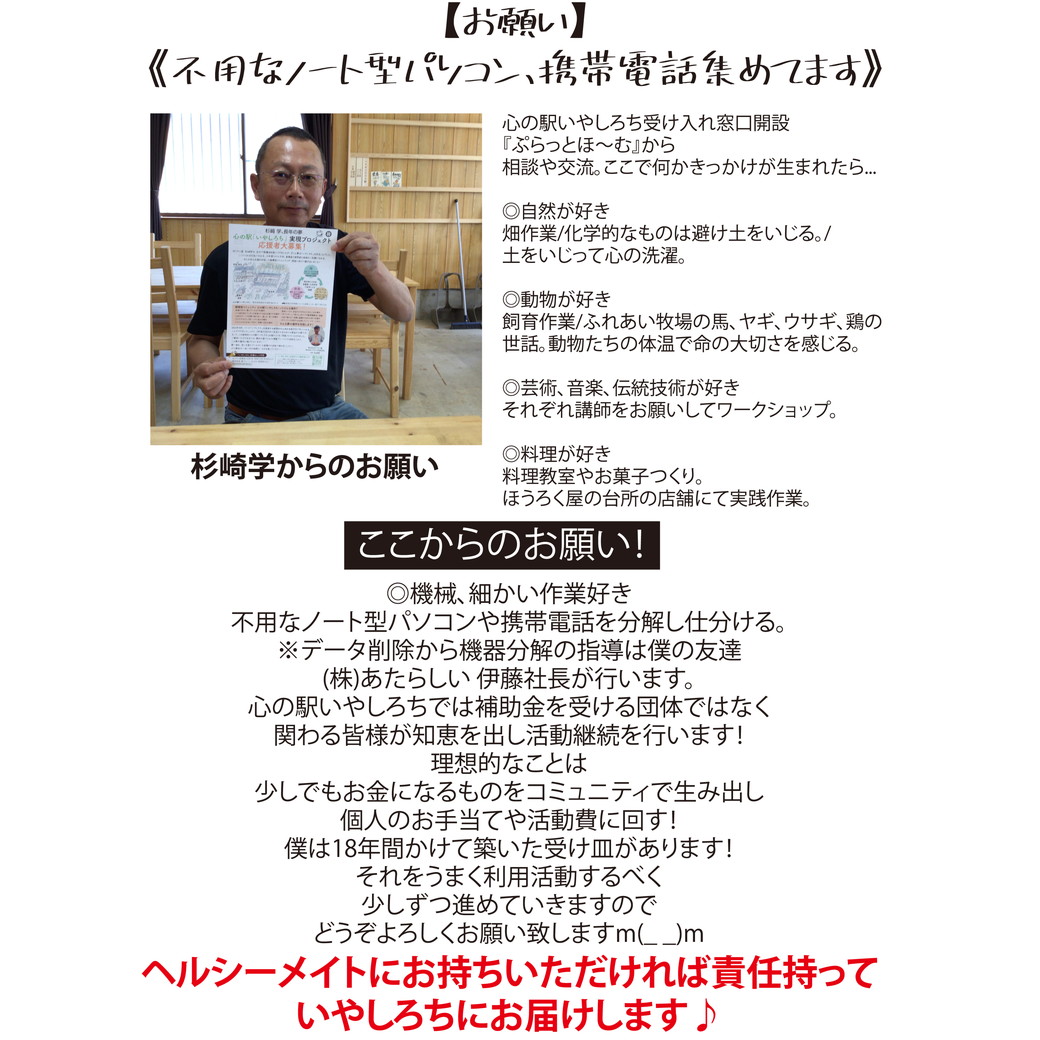 【お願い】
《不用なノート型パソコン、携帯電話集めてます》
心の駅いやしろち受け入れ窓口開設
『ぷらっとほ〜む』から
相談や交流。ここで何かきっかけが生まれたら...
◎自然が好き
畑作業/化学的なものは避け土をいじる。/
土をいじって心の洗濯。
◎動物が好き
飼育作業/ふれあい牧場の馬、ヤギ、ウサギ、鶏の
世話。動物たちの体温で命の大切さを感じる。
◎芸術、音楽、伝統技術が好き
それぞれ講師をお願いしてワークショップ。
◎料理が好き
料理教室やお菓子つくり。
ほうろく屋の台所の店舗にて実践作業。
杉崎 学、長年の夢
心の駅「いやしろち」実現プロジェクト
応援者大募集!
杉崎学からのお願い
ここからのお願い!
◎機械、細かい作業好き
不用なノート型パソコンや携帯電話を分解し仕分ける。
※データ削除から機器分解の指導は僕の友達
(株)あたらしい 伊藤社長が行います。
心の駅いやしろちでは補助金を受ける団体ではなく
関わる皆様が知恵を出し活動継続を行います!
理想的なことは
少しでもお金になるものをコミュニティで生み出し
個人のお手当てや活動費に回す!
僕は18年間かけて築いた受け皿があります!
それをうまく利用活動するべく
少しずつ進めていきますので
どうぞよろしくお願い致しますm(_ _)m
ヘルシーメイトにお持ちいただければ責任持って
いやしろちにお届けします♪